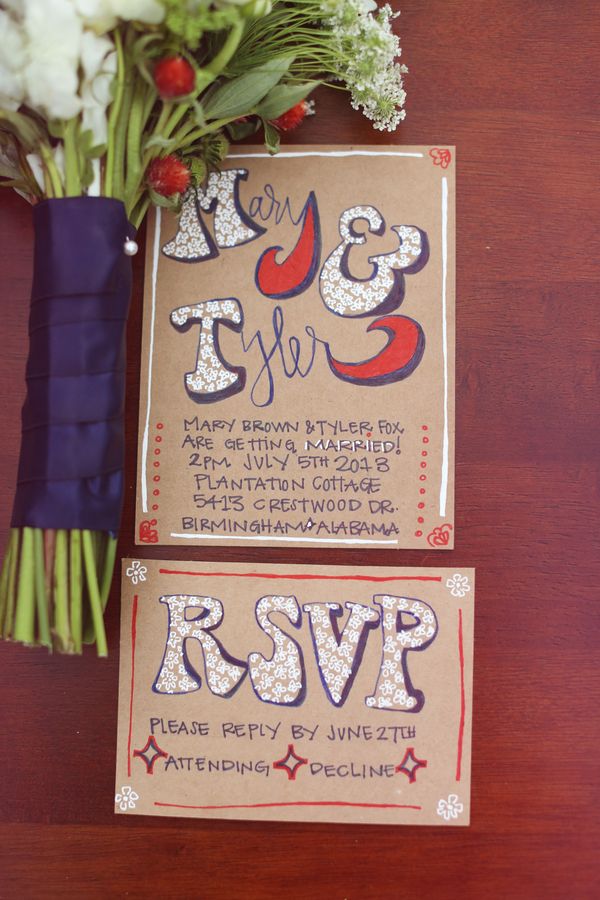 Mary &
Tyler
MARY BROWN & TYLER FOX
ARE GETTING MARRIED!
2PM JULY 5TH 2013
PLANTATION COTTAGE
5413 CRESTWOOD DR.
BIRMINGHAM ALABAMA
RSVP
PLEASE REPLY BY JUNE 27TH
ATTENDING DECLINE